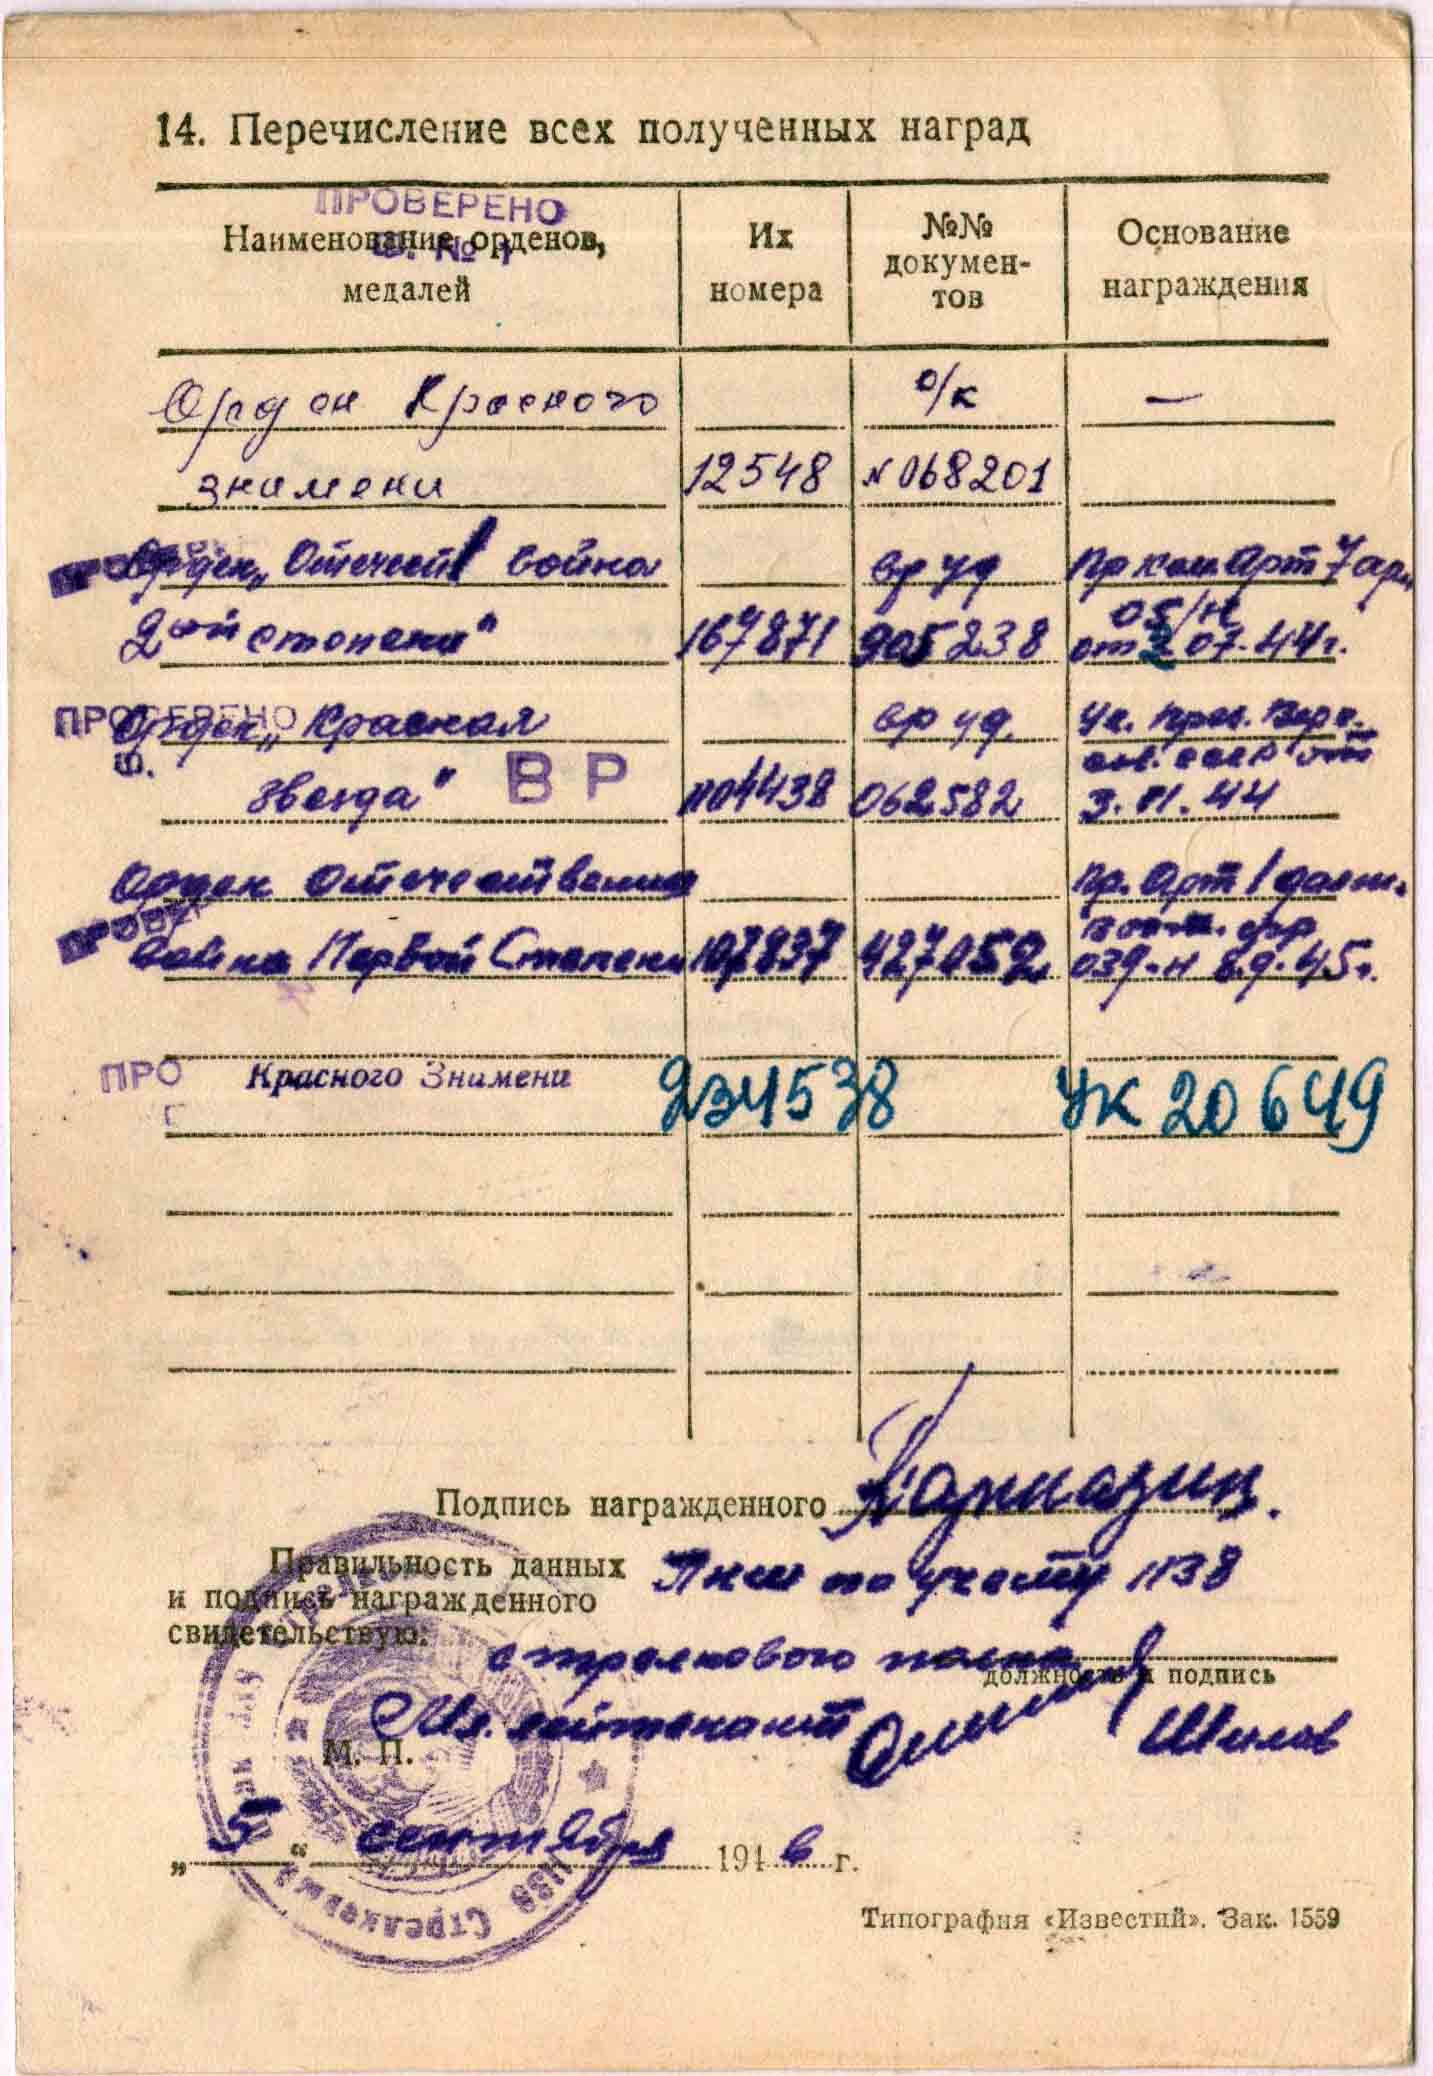 14. Перечисление всех полученных наград
ПРОВЕРЕНО
Наименование орденов,
медалей
Их
номера
№№
докумен-
тов
Основание
награждения
Орден Красного
о/к
—
знамени
12548
№ 068201
Орден „Отечест война
вр уд
Пр ком Арт 7 арм
05/н
2ой степени"
167871
905238
от 2 07.44г.
ПРОВЕРЕНО
Орден „Красная
вр уд.
Ук. през. Верх.
сов. СССР от
звезда"
ВР
1104438
062582
3.11.44
Орден Отечественная
Пр. Арт 1
война Первой Степени
107837
427052
039-н 8.9.45г.
ПРО
Красного Знамени
234538
УК 20649
Подпись награжденного
Кармазин.
Правильность данных
и подпись награжденного
свидетельствую:
Пнш по учету 1138
стрелкового полка
должность и подпись
Мл. лейтенант
Шилов
М. П.
1138 Стрелковый
„5“ сентября 1946 г.
Типография «Известий». Зак. 1559